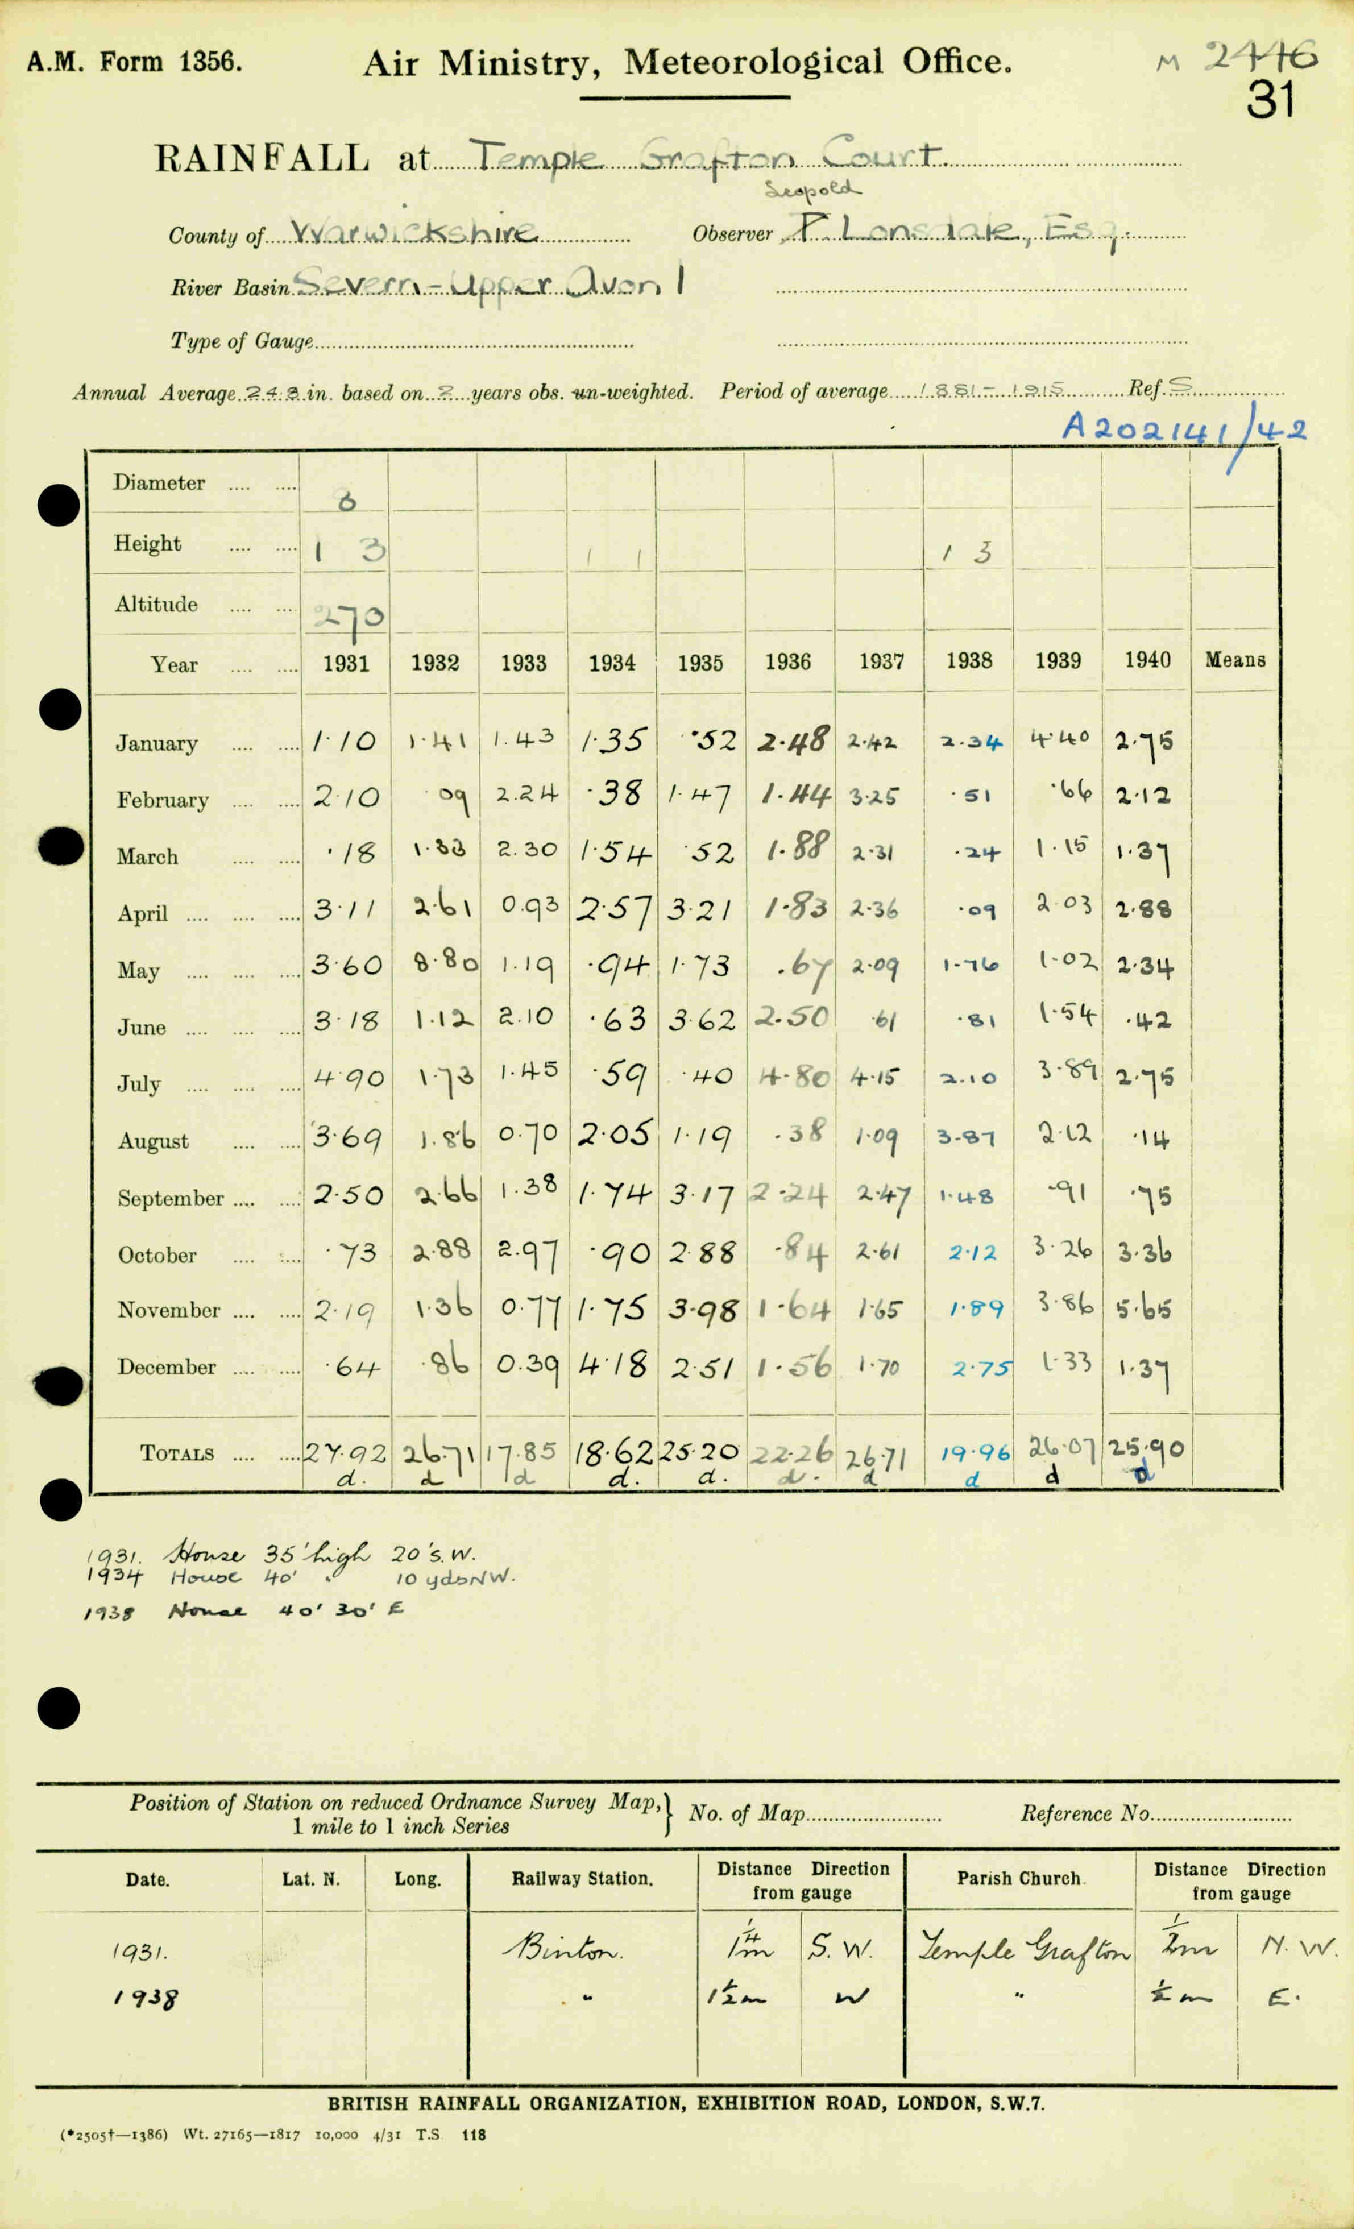 A.M. Form 1356.
Air Ministry, Meteorological Office.
M 2446
31
RAINFALL at Temple Grafton Court.
Leopold
County of Warwickshire Observer P Lonsdale, Esq.
River Basin Severn - Upper Avon 1
Type of Gauge
Annual Average 24.8 in. based on 2 years obs. un-weighted. Period of average 1881 - 1915 Ref. S
A202141/42
Diameter 8
Height 1 3 1 1 1 3
Altitude 270
Year 1931 1932 1933 1934 1935 1936 1937 1938 1939 1940 Means
January 1.10 1.41 1.43 1.35 .52 2.48 2.42 2.34 4.40 2.75
February 2.10 09 2.24 .38 1.47 1.44 3.25 .51 .66 2.12
March .18 1.33 2.30 1.54 .52 1.88 2.31 .24 1.15 1.37
April 3.11 2.61 0.93 2.57 3.21 1.83 2.36 .09 2.03 2.88
May 3.60 8.80 1.19 .94 1.73 .67 2.09 1.76 1.02 2.34
June 3.18 1.12 2.10 .63 3.62 2.50 .61 .81 1.54 .42
July 4.90 1.73 1.45 .59 .40 4.80 4.15 2.10 3.89 2.75
August 3.69 1.86 0.70 2.05 1.19 .38 1.09 3.87 2.12 .14
September 2.50 2.66 1.38 1.74 3.17 2.24 2.47 1.48 .91 .75
October .73 2.88 2.97 .90 2.88 .84 2.61 2.12 3.26 3.36
November 2.19 1.36 0.77 1.75 3.98 1.64 1.65 1.89 3.86 5.65
December .64 .86 0.39 4.18 2.51 1.56 1.70 2.75 1.33 1.37
TOTALS 27.92 26.71 17.85 18.62 25.20 22.26 26.71 19.96 26.07 25.90
d. d d d. d. d. d d d d
1931. House 35' high 20' S.W.
1934 House 40' " 10 yds NW.
1938 House 40' 30' E
Position of Station on reduced Ordnance Survey Map, } No. of Map Reference No.
1 mile to 1 inch Series
Date. Lat. N. Long. Railway Station. Distance Direction from gauge Parish Church Distance Direction from gauge
1931. Binton. 1 1/4 m S. W. Temple Grafton 1/2 m N. W.
1938 " 1 1/2 m W " 1/2 m E.
BRITISH RAINFALL ORGANIZATION, EXHIBITION ROAD, LONDON, S.W.7.
(*2505†—1386) Wt. 27165—1817 10,000 4/31 T.S. 118